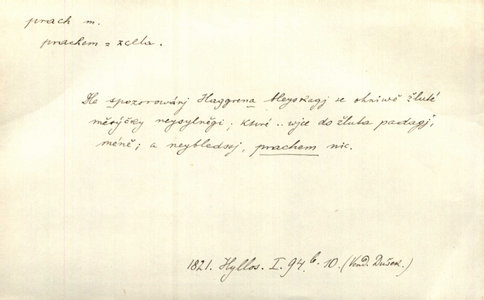 prach m.
prachem = zcela.
Dle spozorowánj Haggrena bleyskagj se ohniwě žluté
měsýčky neysylněgi; které .. wjce do žluta padagj,
méně; a neybledssj, prachem nic.
1821. Hyllos. I. 94 b. 10. (Vend. Dušek.)